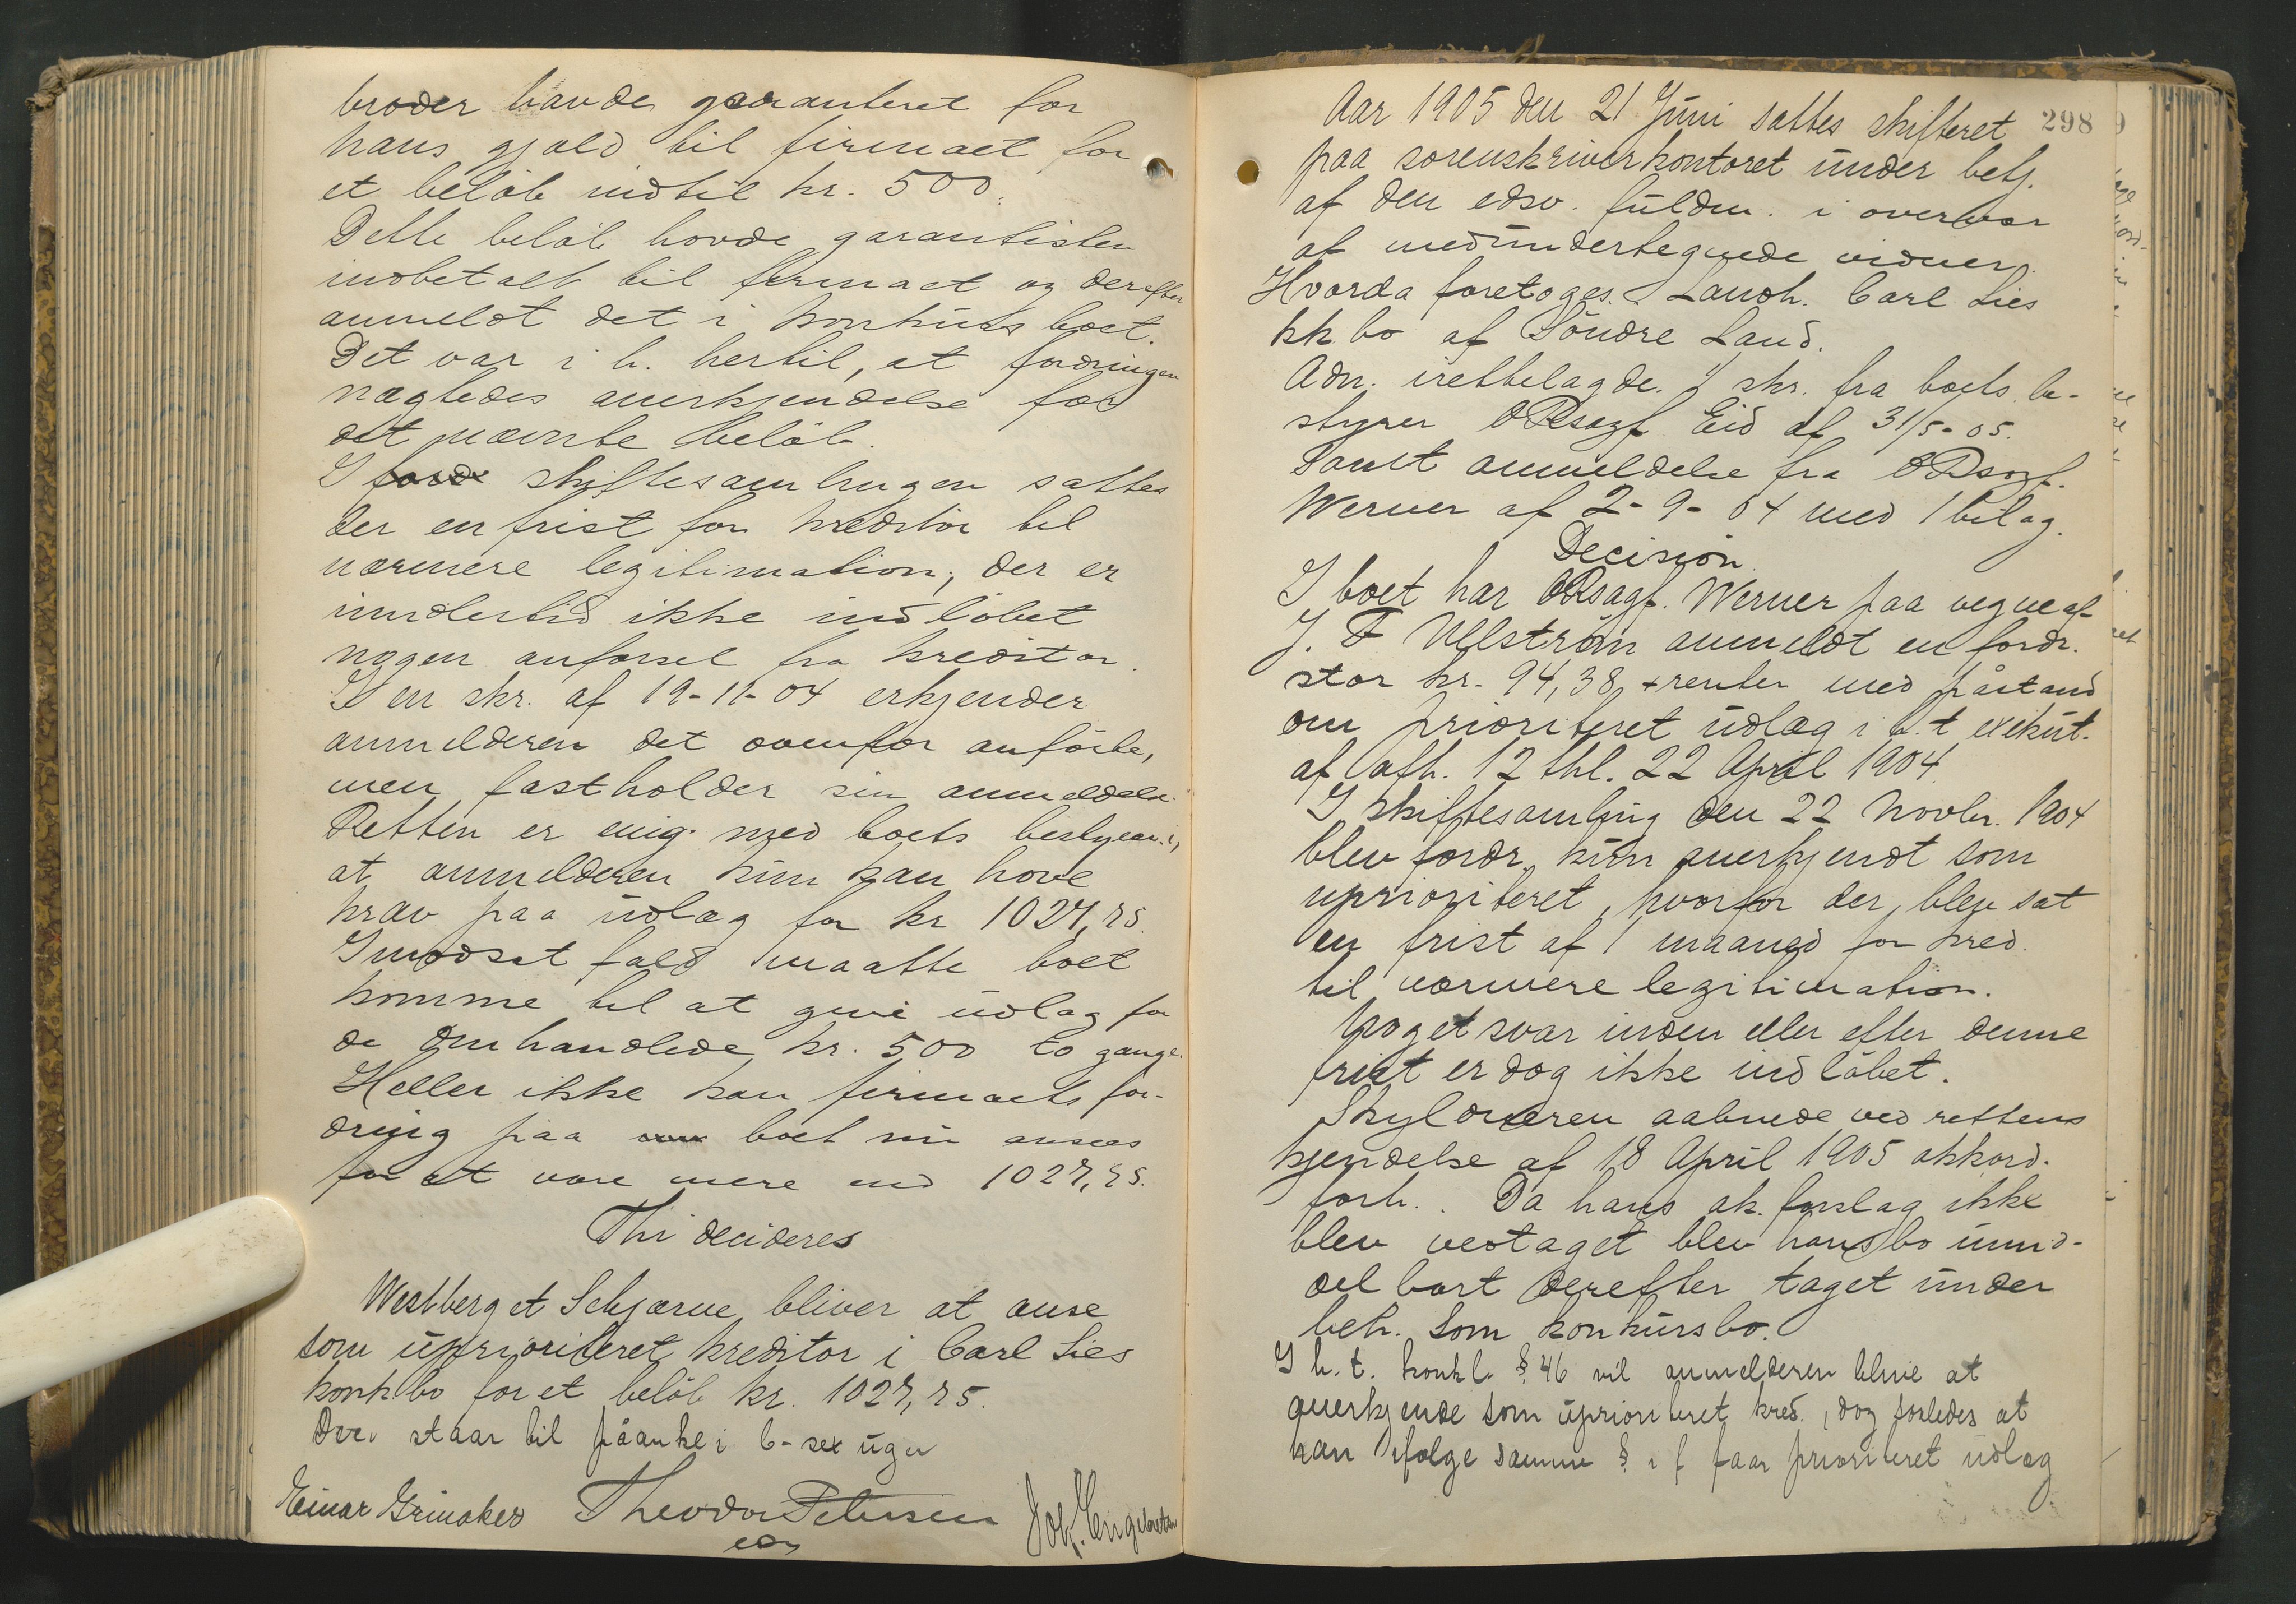 broder havde garanteret for
hans gjæld til firmaet for
et beløb indtil kr. 500.
Dette beløb havde garantisten
indbetalt til firmaet og derefter
anmeldt det i konkursboet.
Det var i h. hertil, at fordringen
nægtedes anerkjendelse for
det nævnte beløb.
I skiftesamlingen sattes
der en frist for kreditor til
nærmere legitimation, der er
imidlertid ikke indløbet
nogen anførsel fra kreditor.
I en skr. af 19-11-04 erkjender
anmelderen det ovenfor anførte,
men fastholder sin anmeldelse.
Retten er enig med boets bestyrer i,
at anmelderen kun kan have
krav paa udlæg for kr 1027,75.
I modsat fald maatte boet
komme til at give udlæg for
de omhandlede kr. 500 to gange.
Heller ikke kan firmaets for-
dring paa boet nu ansees
for at være mere end 1027,75.
Thi decideres
Westberg et Schjærve bliver at anse
som uprioriteret kreditor i Carl Lies
konkbo for et beløb kr. 1027,75.
Dec. staar til påanke i 6-sex uger
Einar Grinaker Theodor Petersen Joh. Engebretsen
298
Aar 1905 den 21 Juni sattes skifteret
paa sorenskriverkontoret under betj.
af den edsv. fuldm. i overvær
af medundertegnede vidner.
Hvorda foretoges Landh. Carl Lies
kk bo af Søndre Land.
Adm. irettelagde 1 skr. fra boets be-
styrer ORsagf. Eid af 31/5-05.
Samt anmeldelse fra ORsagf.
Werner af 2-9-04 med 1 bilag.
Decision.
I boet har ORsagf. Werner paa vegne af
J. F Ullstrøm anmeldt en fordr.
stor kr. 94,38 + renter med påstand
om prioriteret udlæg i h.t exekut.
af afh. 12 thl. 22 April 1904.
I skiftesamling den 22 Novbr. 1904
blev fordr. kun anerkjendt som
uprioriteret, hvorfor der blev sat
en frist af 1 maaned for kred.
til nærmere legitimation.
Noget svar inden eller efter denne
frist er dog ikke indløbet.
Skyldneren aabnede ved rettens
kjendelse af 18 April 1905 akkord-
forh. Da hans ak. forslag ikke
blev vedtaget blev hans bo umid-
delbart derefter taget under
beh. som konkursbo.
I h.t. konkl. § 46 vil anmelderen blive at
anerkjende som uprioriteret kred., dog saaledes at
han ifølge samme § i f faar prioriteret udlæg